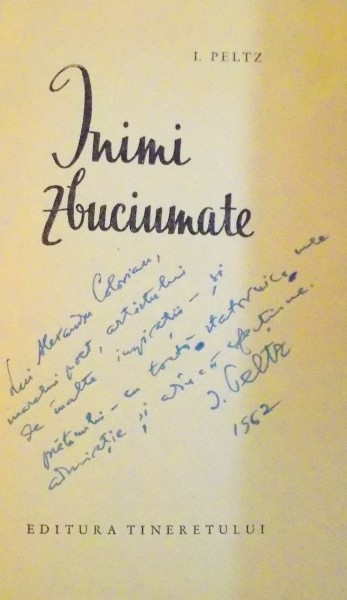 I. PELTZ
Inimi
zbuciumate
Lui Alexandru Colorian,
marelui poet, artistului
de înalte inspirații – și
prietenului – cu toată statornica mea
admirație și adâncă afecțiune.
I. Peltz
1962
EDITURA TINERETULUI